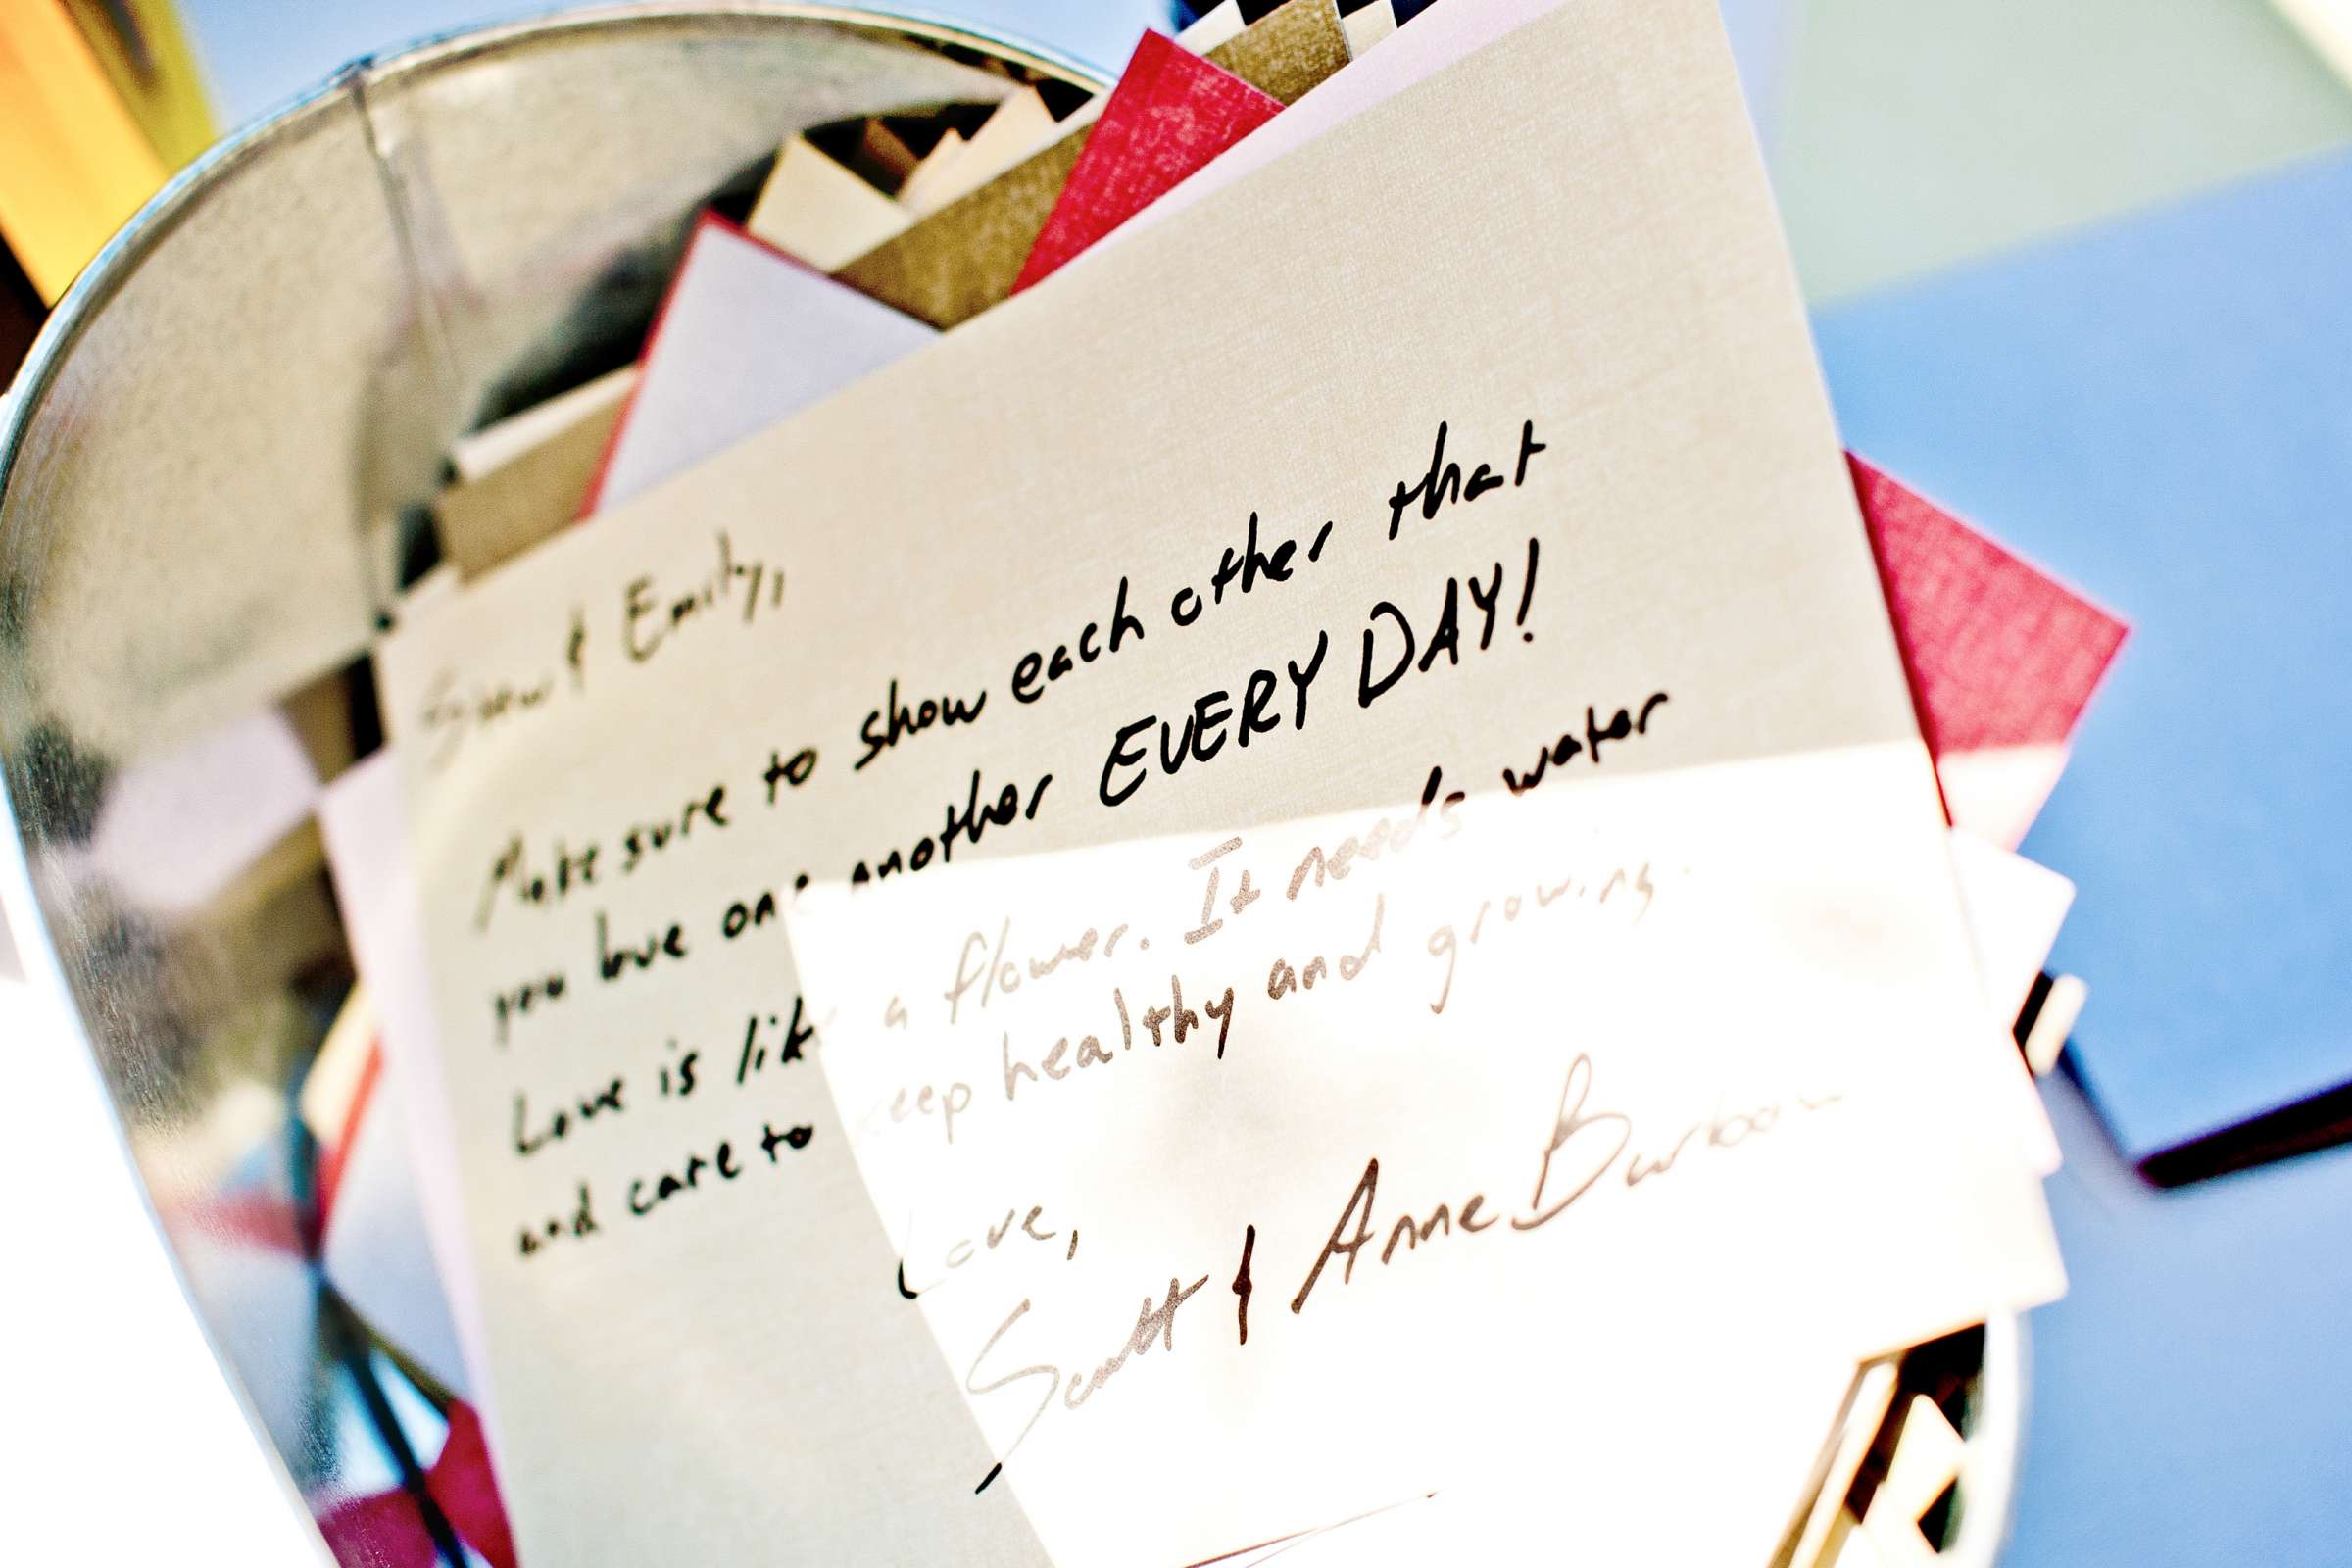 & Emily,
Make sure to show each other that
you love one another EVERY DAY!
Love is like a flower. It needs water
and care to keep healthy and growing.
Love,
Scott & Anne